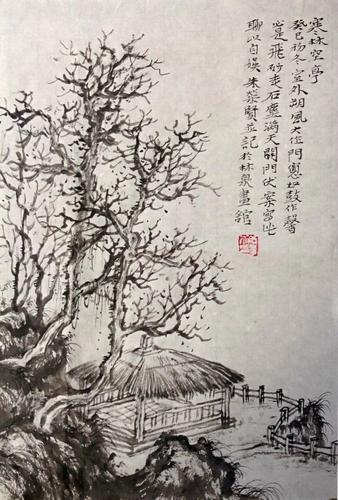 寒林空亭
癸巳初冬室外朔風大作門窗如鼓作聲
飛砂走石塵滿天關門伏案寫此
聊以自娛朱榮賢並記於林泉畫館